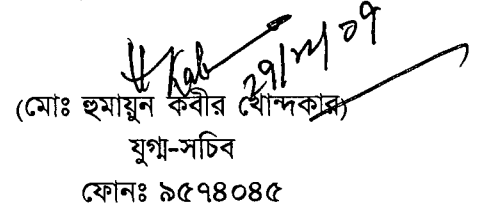 H Kab 29/12/09
(মোঃ হুমায়ুন কবীর খোন্দকার)
যুগ্ম-সচিব
ফোনঃ ৯৫৭৪০৪৫